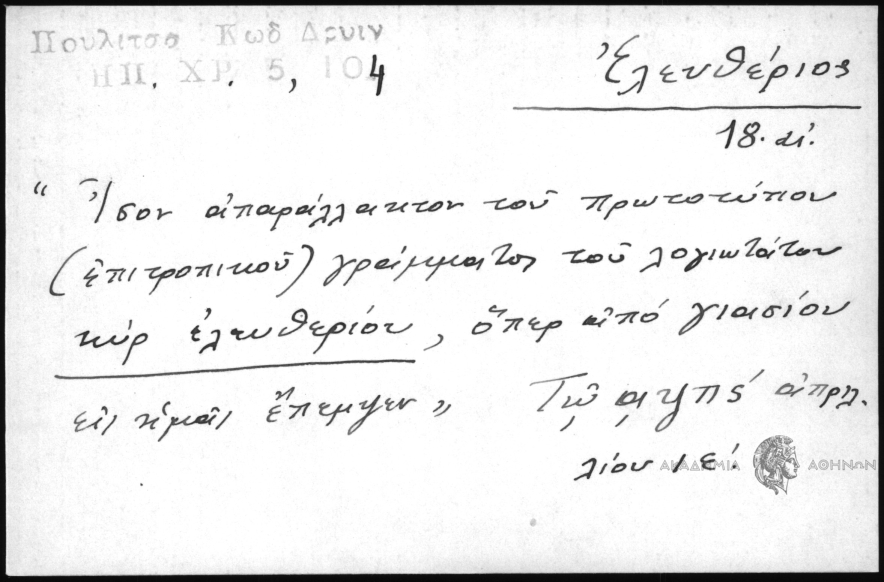 Πουλιτσα Κωδ Δρυιν
ΗΠ. ΧΡ. 5, 104
Ἐλευθέριος
18. αἰ.
“ Ἴσον ἀπαράλλακτον τοῦ πρωτοτύπου
(ἐπιτροπικοῦ) γράμματος τοῦ λογιωτάτου
κύρ ἐλευθερίου, ὅπερ ἀπό γιασίου
εἰς ἡμᾶς ἔπεμψεν „ Τῷ ᾳψπς΄ ἀπριλ-
λίου ιε΄.
ΑΚΑΔΗΜΙΑ ΑΘΗΝΩΝ